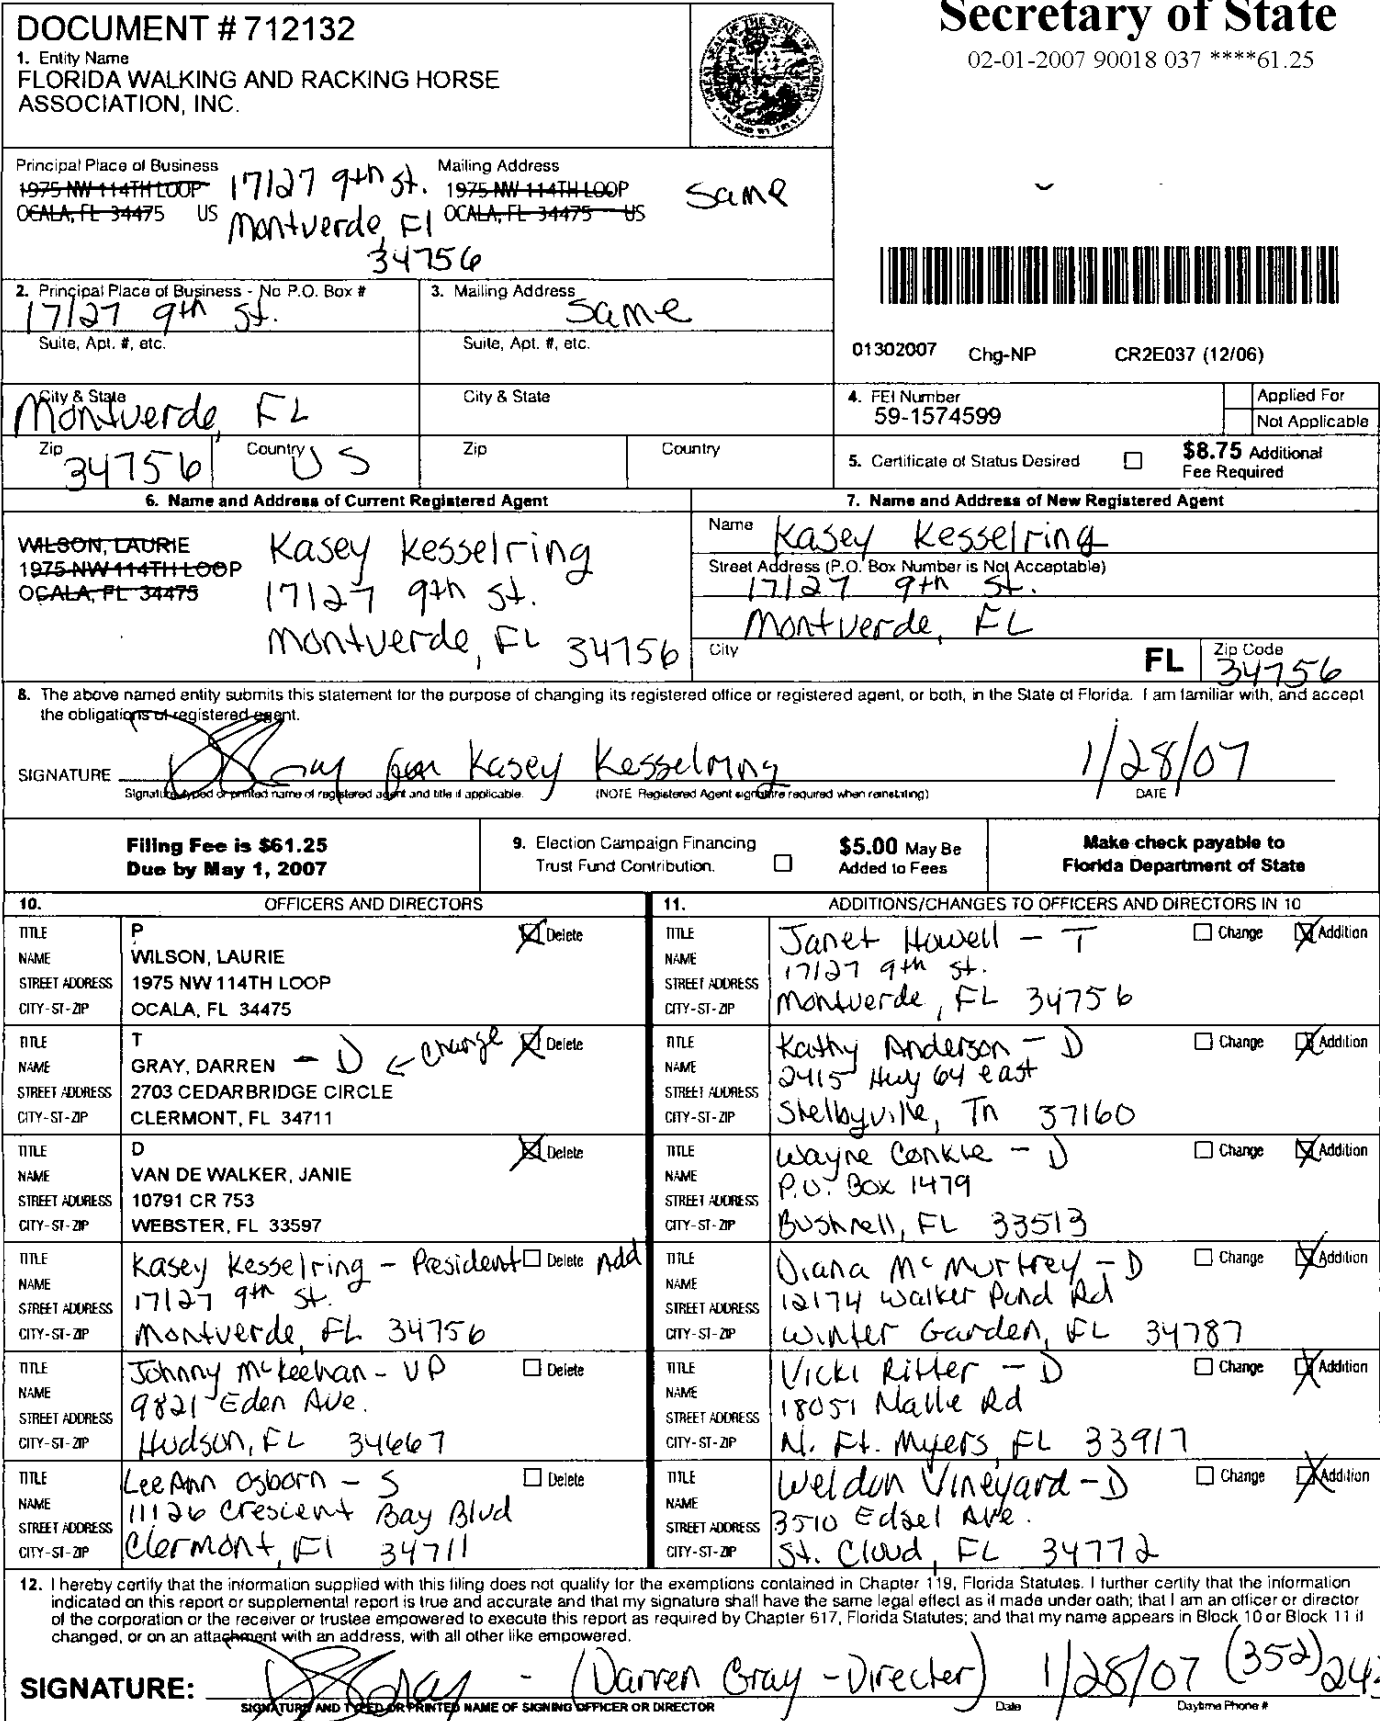 DOCUMENT # 712132
Secretary of State
02-01-2007 90018 037 ****61.25
1. Entity Name
FLORIDA WALKING AND RACKING HORSE
ASSOCIATION, INC.
Principal Place of Business
1975 NW 114TH LOOP
OCALA, FL 34475 US
17127 9th St.
Montverde, Fl
34756
Mailing Address
1975 NW 114TH LOOP
OCALA, FL 34475 US
Same
2. Principal Place of Business - No P.O. Box #
17127 9th St.
3. Mailing Address
Same
Suite, Apt. #, etc.
Suite, Apt. #, etc.
01302007 Chg-NP CR2E037 (12/06)
City & State
Montverde, FL
City & State
4. FEI Number
59-1574599
Applied For
Not Applicable
Zip
34756
Country
US
Zip
Country
5. Certificate of Status Desired
$8.75 Additional
Fee Required
6. Name and Address of Current Registered Agent
WILSON, LAURIE
1975 NW 114TH LOOP
OCALA, FL 34475
Kasey Kesselring
17127 9th St.
Montverde, FL 34756
7. Name and Address of New Registered Agent
Name
Kasey Kesselring
Street Address (P.O. Box Number is Not Acceptable)
17127 9th St.
Montverde, FL
City
FL
Zip Code
34756
8. The above named entity submits this statement for the purpose of changing its registered office or registered agent, or both, in the State of Florida. I am familiar with, and accept
the obligations of registered agent.
SIGNATURE
Gray for Kasey Kesselring
1/28/07
Signature, typed or printed name of registered agent and title if applicable.
(NOTE Registered Agent signature required when reinstating)
DATE
Filing Fee is $61.25
Due by May 1, 2007
9. Election Campaign Financing
Trust Fund Contribution.
$5.00 May Be
Added to Fees
Make check payable to
Florida Department of State
10. OFFICERS AND DIRECTORS
TITLE P Delete
NAME WILSON, LAURIE
STREET ADDRESS 1975 NW 114TH LOOP
CITY-ST-ZIP OCALA, FL 34475
TITLE T Delete
NAME GRAY, DARREN - D ← Change
STREET ADDRESS 2703 CEDARBRIDGE CIRCLE
CITY-ST-ZIP CLERMONT, FL 34711
TITLE D Delete
NAME VAN DE WALKER, JANIE
STREET ADDRESS 10791 CR 753
CITY-ST-ZIP WEBSTER, FL 33597
TITLE Delete Add
NAME Kasey Kesselring - President
STREET ADDRESS 17127 9th St.
CITY-ST-ZIP Montverde, FL 34756
TITLE Delete
NAME Johnny McKeehan - VP
STREET ADDRESS 9821 Eden Ave.
CITY-ST-ZIP Hudson, FL 34667
TITLE Delete
NAME LeeAnn Osborn - S
STREET ADDRESS 11126 Crescient Bay Blvd
CITY-ST-ZIP Clermont, Fl 34711
11. ADDITIONS/CHANGES TO OFFICERS AND DIRECTORS IN 10
TITLE Change Addition
NAME Janet Howell - T
STREET ADDRESS 17127 9th St.
CITY-ST-ZIP Montverde, FL 34756
TITLE Change Addition
NAME Kathy Anderson - D
STREET ADDRESS 2415 Hwy 64 east
CITY-ST-ZIP Shelbyville, Tn 37160
TITLE Change Addition
NAME Wayne Conkle - D
STREET ADDRESS P.O. Box 1479
CITY-ST-ZIP Bushnell, FL 33513
TITLE Change Addition
NAME Diana McMurtrey - D
STREET ADDRESS 12174 Walker Pond Rd
CITY-ST-ZIP Winter Garden, FL 34787
TITLE Change Addition
NAME Vicki Ritter - D
STREET ADDRESS 18051 Rd
CITY-ST-ZIP N. Ft. Myers, FL 33917
TITLE Change Addition
NAME Weldon Vineyard - D
STREET ADDRESS 3510 Edsel Ave.
CITY-ST-ZIP St. Cloud, FL 34772
12. I hereby certify that the information supplied with this filing does not qualify for the exemptions contained in Chapter 119, Florida Statutes. I further certify that the information
indicated on this report or supplemental report is true and accurate and that my signature shall have the same legal effect as if made under oath; that I am an officer or director
of the corporation or the receiver or trustee empowered to execute this report as required by Chapter 617, Florida Statutes; and that my name appears in Block 10 or Block 11 if
changed, or on an attachment with an address, with all other like empowered.
SIGNATURE: Gray - (Darren Gray - Director) 1/28/07 (352) 243
SIGNATURE AND TYPED OR PRINTED NAME OF SIGNING OFFICER OR DIRECTOR
Date
Daytime Phone #